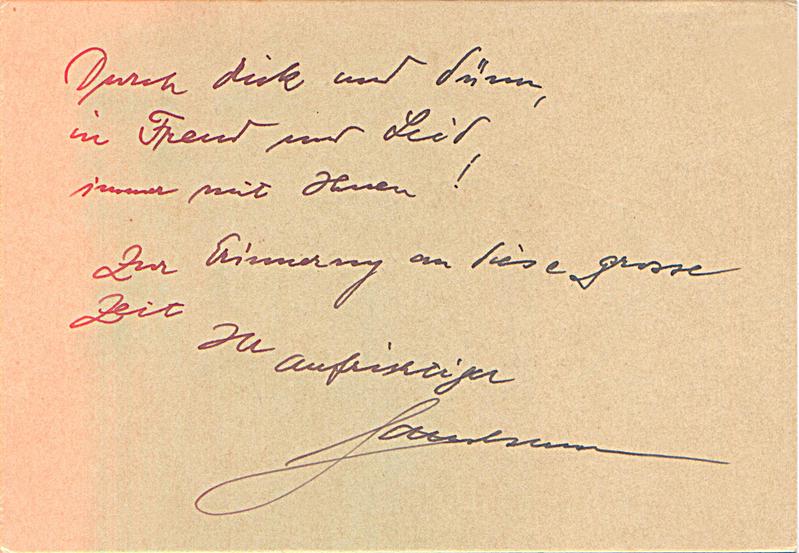 Durch dick und dünn,
in Freud und Leid,
immer mit Ihnen!
Zur Erinnerung an diese grosse
Zeit
Ihr
aufrichtiger